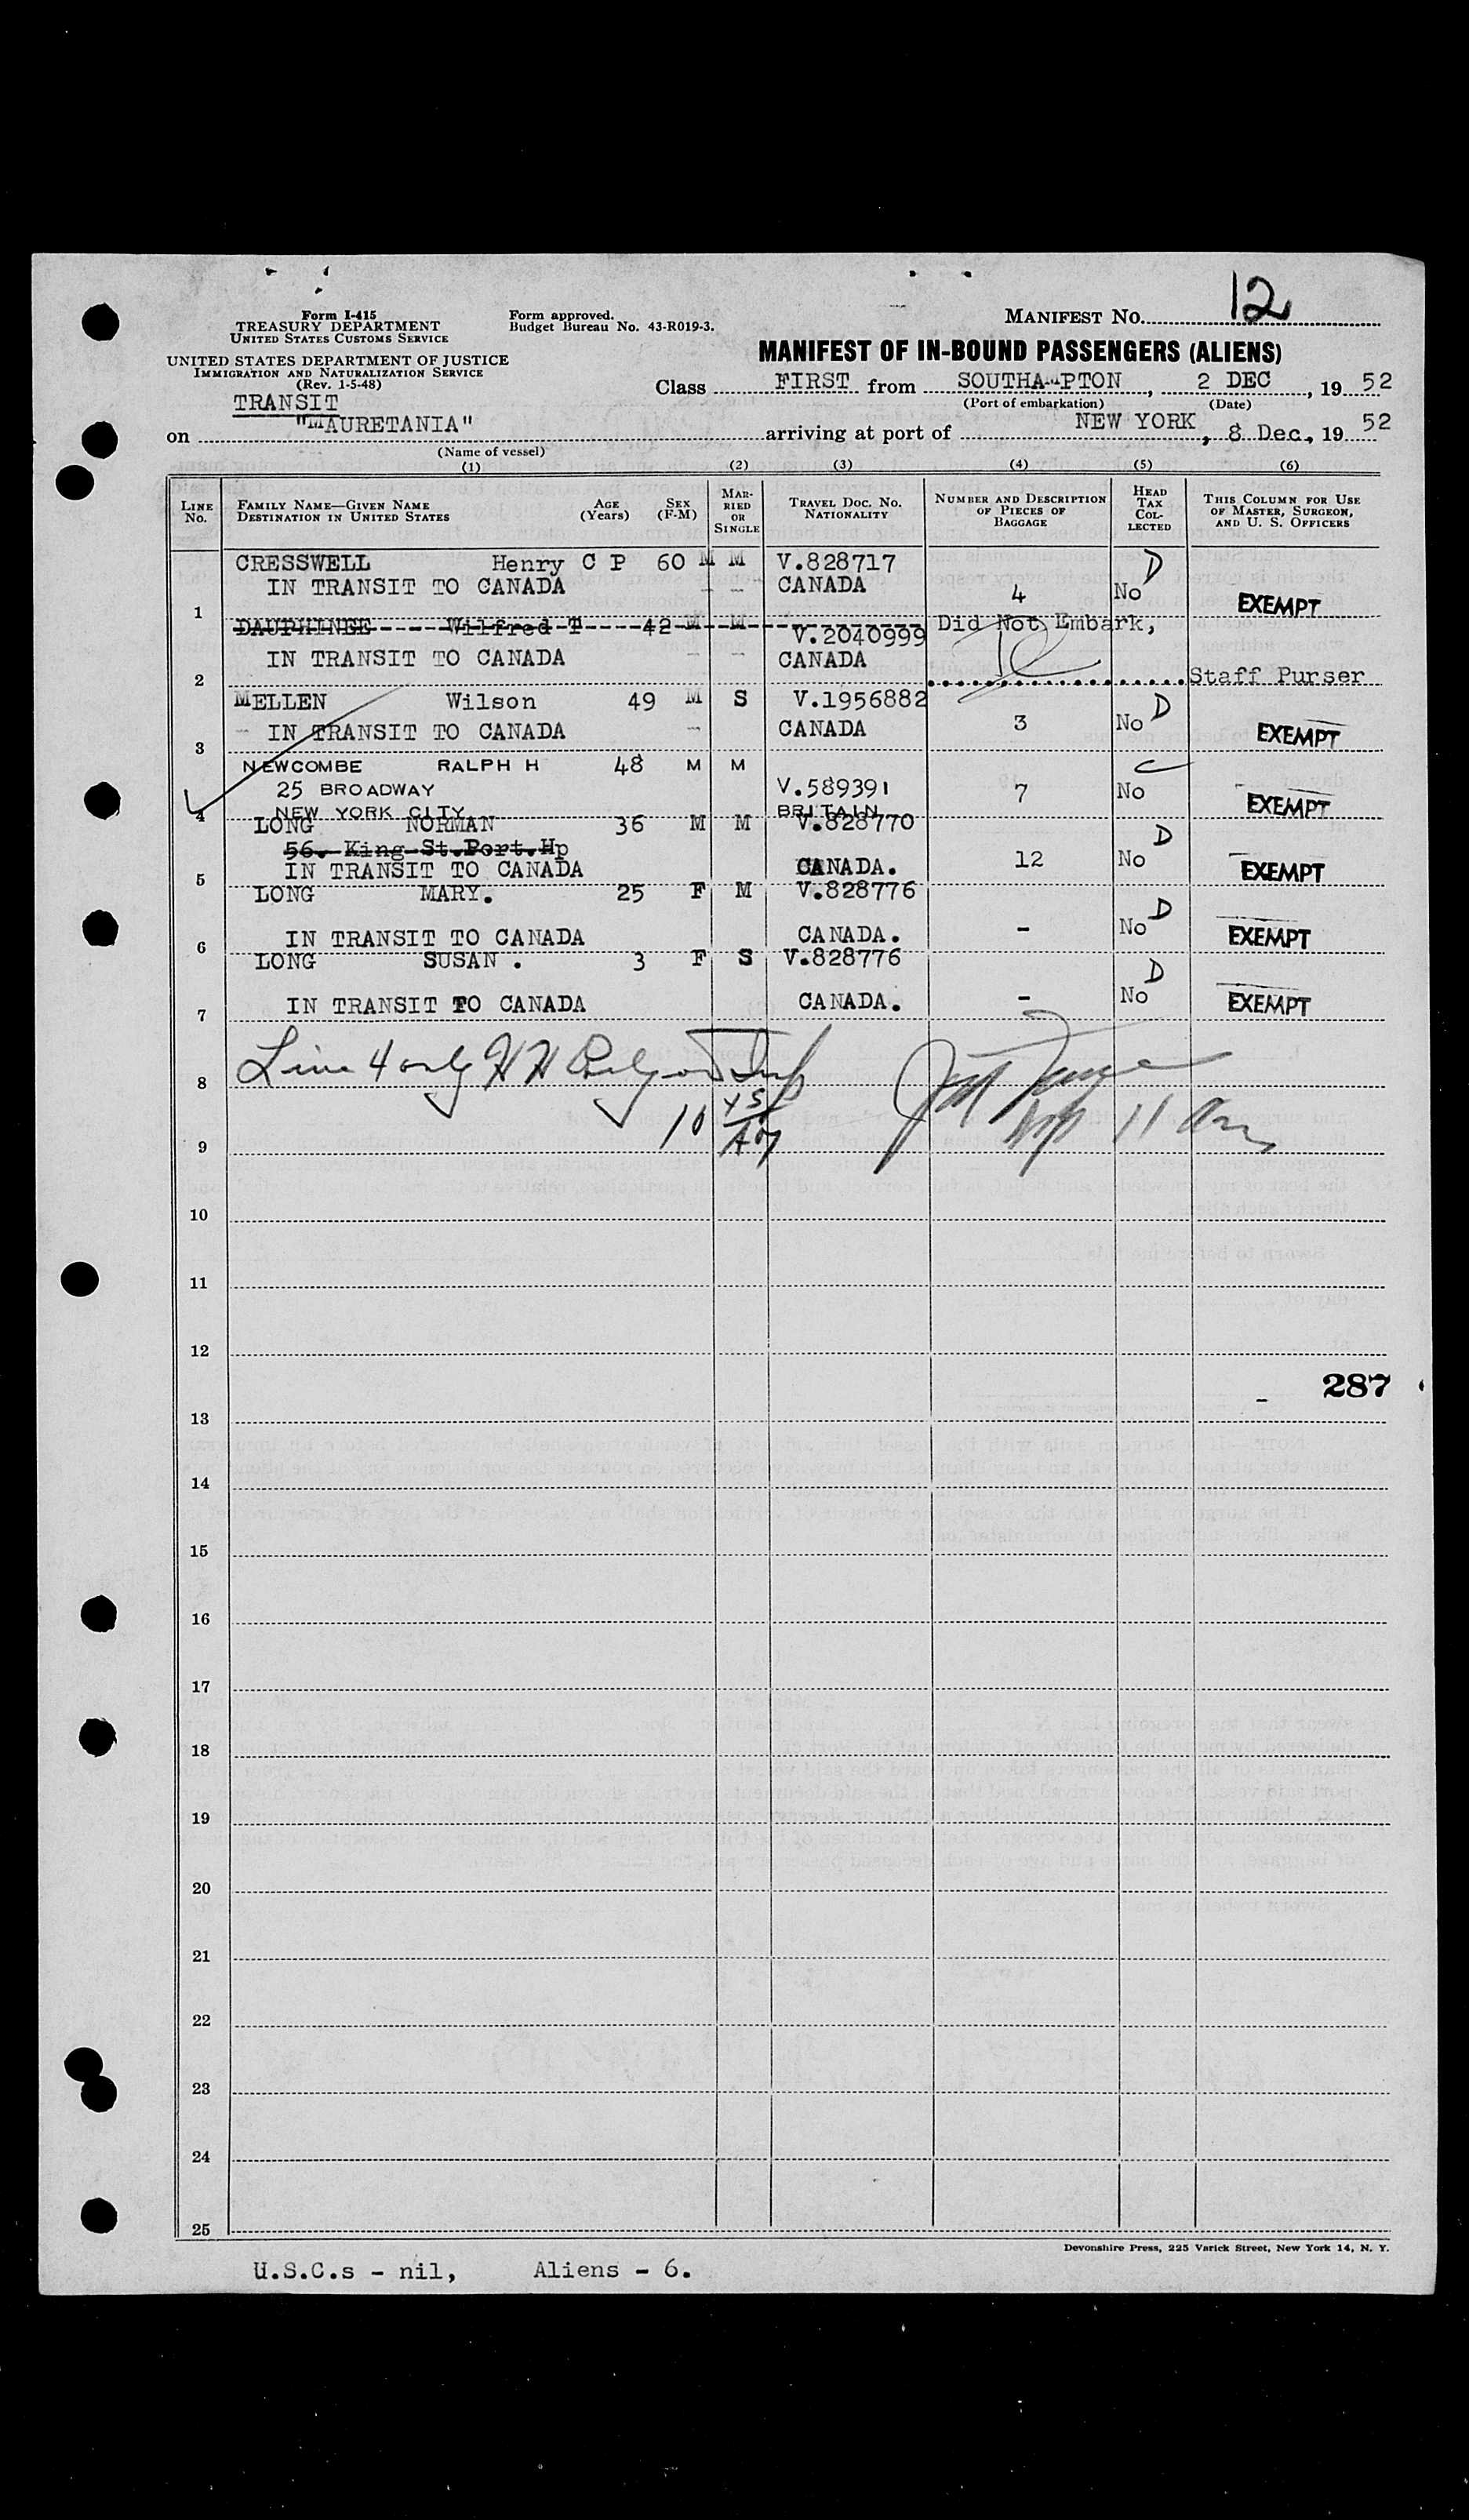 12
Form I-415
TREASURY DEPARTMENT
UNITED STATES CUSTOMS SERVICE
Form approved.
Budget Bureau No. 43-R019-3.
MANIFEST No.
UNITED STATES DEPARTMENT OF JUSTICE
IMMIGRATION AND NATURALIZATION SERVICE
(Rev. 1-5-48)
MANIFEST OF IN-BOUND PASSENGERS (ALIENS)
Class FIRST from SOUTHAMPTON, 2 DEC, 19 52
(Port of embarkation) (Date)
TRANSIT
on "MAURETANIA" arriving at port of NEW YORK, 8 Dec., 19 52
(Name of vessel)
(1) (2) (3) (4) (5) (6)
LINE No. FAMILY NAME—GIVEN NAME DESTINATION IN UNITED STATES AGE (Years) SEX (F-M) MARRIED OR SINGLE TRAVEL DOC. NO. NATIONALITY NUMBER AND DESCRIPTION OF PIECES OF BAGGAGE HEAD TAX COLLECTED THIS COLUMN FOR USE OF MASTER, SURGEON, AND U. S. OFFICERS
CRESSWELL Henry C P 60 M M V.828717 D
1 IN TRANSIT TO CANADA - - CANADA 4 No EXEMPT
DAUPHINEE-----Wilfred T----42-M--M-- V.2040999 Did Not Embark,
2 IN TRANSIT TO CANADA - - CANADA Staff Purser
MELLEN Wilson 49 M S V.1956882 D
3 - IN TRANSIT TO CANADA - CANADA 3 No EXEMPT
NEWCOMBE RALPH H 48 M M
25 BROADWAY V.589391 7 No
4 NEW YORK CITY BRITAIN EXEMPT
LONG NORMAN 36 M M V.828770 D
56. King St.Port.Hp
5 IN TRANSIT TO CANADA CANADA. 12 No EXEMPT
LONG MARY. 25 F M V.828776 D
6 IN TRANSIT TO CANADA CANADA. - No EXEMPT
LONG SUSAN . 3 F S V.828776 D
7 IN TRANSIT TO CANADA CANADA. - No EXEMPT
Line 4 only
8
9
10
11
12
287
13
14
15
16
17
18
19
20
21
22
23
24
25
Devonshire Press, 225 Varick Street, New York 14, N. Y.
U.S.C.s - nil, Aliens - 6.